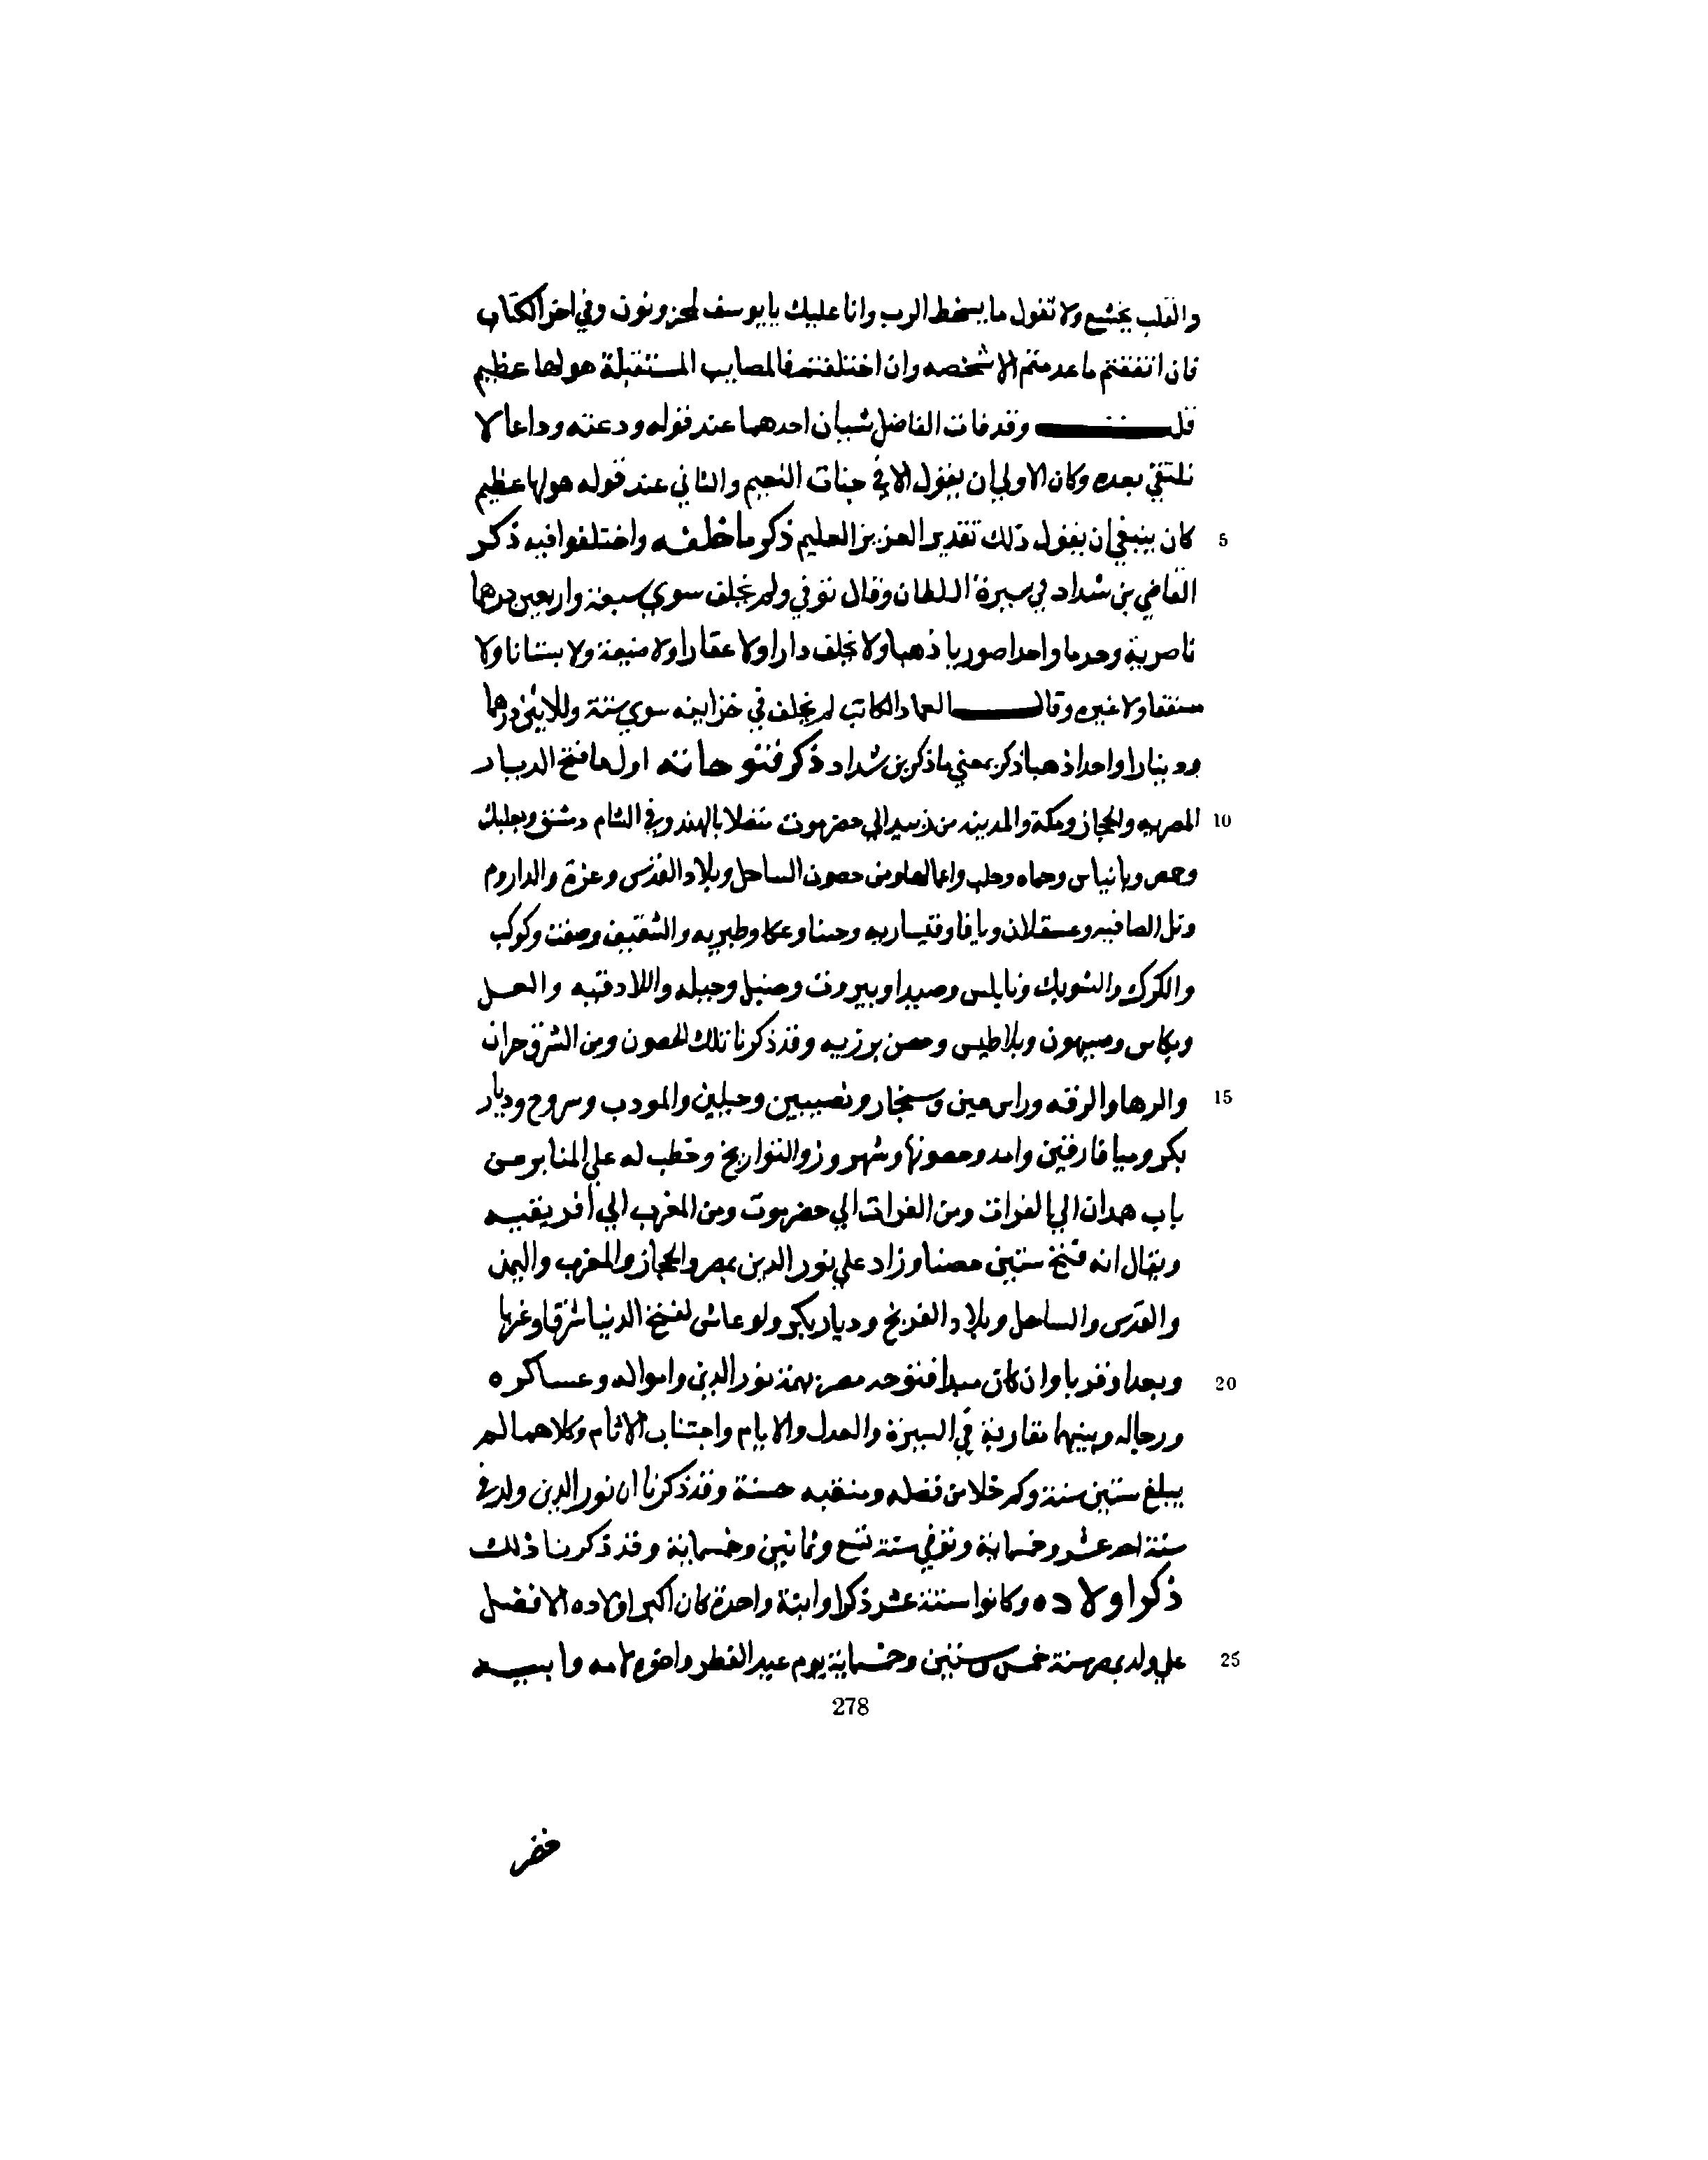 والقلب يخشع ولا نقول ما يسخط الرب وانا عليك يا يوسف لمحزونون وفي اخر الكتاب
فان اتفقتم ما عدمتم الا شخصه وان اختلفتم فالمصايب المستقبلة هولها عظيم
قلت وقد فات الفاضل شيان احدهما عند قوله ودعته وداعا لا
نلتقي بعده وكان الاولي ان يقول الا في جنات النعيم والثاني عند قوله هولها عظيم
5 كان ينبغي ان يقول ذلك تقدير العزيز العليم ذكر ما خلفه واختلفوا فيه ذكر
القاضي بن شداد في سيرة السلطان وقال توفي ولم يخلف سوي سبعة واربعين درهما
ناصرية وجرما واحدا صوريا ذهبا ولا يخلف دارا ولا عقارا ولا ضيعة ولا بستانا ولا
سقفا ولا غيره وقال العماد الكاتب لم يخلف في خزاينه سوي ستة وثلاثين درهما
ودينارا واحدا ذهبا ذكر بمعني ما ذكر بن شداد ذكر فتوحاته اولها فتح الديار
10 المصريه والحجاز ومكة والمدينه من زبيد الي حضرموت متصلا بالهند وفي الشام دمشق وبعلبك
وحمص وبانياس وحماه وحلب واعمالها ومن حصون الساحل وبلاد القدس وغزة والداروم
وتل الصافيه وعسقلان ويافا وقيساريه وحيفا وعكا وطبريه والشقيف وصفت وكوكب
والكرك والشوبك ونابلس وصيدا وبيروت وجبيل وجبله واللادقيه والعسل
وبكاس وصيهون وبلاطيس وحصن برزيه وقد ذكرنا تلك الحصون ومن الشرق حران
15 والرها والرقه وراس عين وسنجار ونصيبين وجبلين والمودب وسروج وديار
بكر وميا فارقين وامد وحصونها وشهروز والتواريخ وخطب له علي المنابر من
باب همدان الي الفرات ومن الفرات الي حضرموت ومن المغرب الي افريقيه
ويقال انه فتح ستين حصنا وزاد علي نور الدين بمصر والحجاز والمغرب واليمن
والقدس والساحل وبلاد الفرنج وديار بكر ولو عاش لفتح الدنيا شرقا وغربا
20 وبعدا وقربا وان كان مبدا فتوحه مصر بهمة نور الدين وامواله وعساكره
ورجاله وبينهما مقاربة في السيرة والعدل والايام واجتناب الاثام وكلاهما لم
يبلغ ستين سنة وكم خلا من فضله ومنقبه حسنة وقد ذكرنا ان نور الدين ولد في
سنة احد عشر وخمسماية وتوفي سنة تسع وثمانين وخمسماية وقد ذكرنا ذلك
ذكر اولاده وكانوا ستة عشر ذكرا وابنة واحدة كان اكبر اولاده الافضل
25 علي ولد بمصر سنة خمس وستين وخمسماية يوم عيد الفطر واخوه لامه وابيه
278
خضر